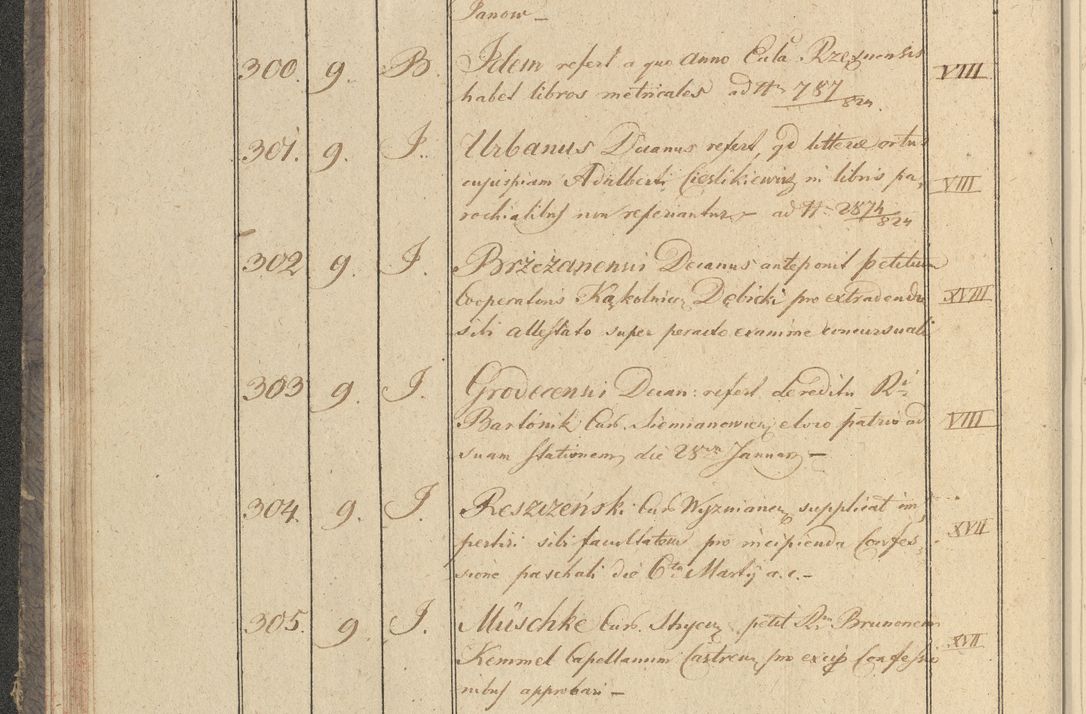 Janow –
300. 9. B. Idem refert a quo anno Ecla Rzesnensis VIII
habet libros metricales ad N 787/824.
301. 9. I. Urbanus Decanus refert, qd litterae ortus
cujuspiam Adalberti Cieslikiewicz in libris pa, VIII
rochialibus non reperiantur – ad N 2874/824
302 9. I. Brzeżanensis Decanus anteponit petitum
Cooperatoris Kąkolnicz Dębicki pro extradendo XVIII
sibi attestato super peracto examine concursuali
303 9. I. Grodecensis Decan: refert de reditu Ri
Bartonik Cur. Siemianowicz e loco patrio ad VIII
suam stationem die 28va January –
304. 9. I. Reszczeński Cur Wyzmiane supplicat im,
pertiri sibi facultatem pro incipienda Confes, XVII
sione paschali die 6ta Martij a. c. –
305. 9 I. Müschke Cur. petit Rm Brunonem
Kemmel Capellanum Castren pro excip Confessio XVII
nibus approbari –